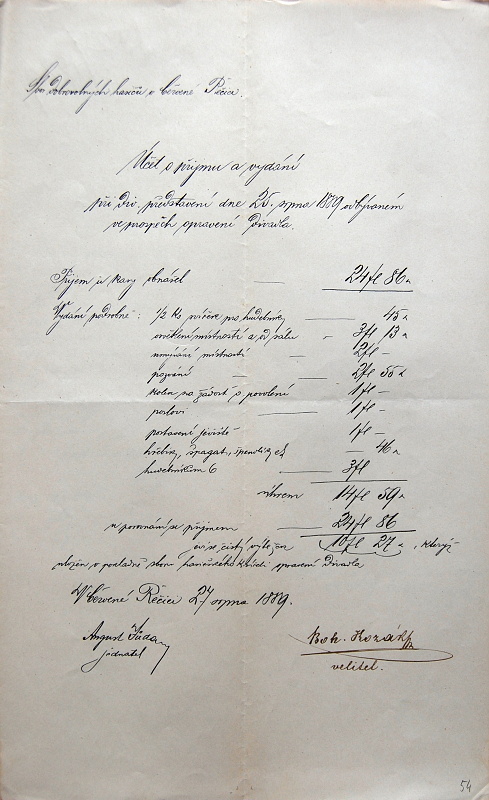 Sbor dobrovolných hasičů v Červené Řečici.
Účet o příjmu a vydání
při div. představení dne 25. srpna 1889 odbývaném
ve prospěch spravení divadla.
Příjem u kasy obnášel — 24 fl 86 k
Vydání podrobné: 1/2 hl piva pro hudebníky — 45 k
osvětlení místností a sálu — 3 fl 13 k
umývání místností — 2 fl —
pozvání — 2 fl 55 k
kolek na žádost o povolení — 1 fl —
poslovi — 1 fl —
postavení jeviště — 1 fl —
hřebíky, špagát, špendlíky — 46 k
hudebníkům 6 — 3 fl
úhrnem 14 fl 59 k
u porovnání se příjmem — 24 fl 86
čistý výtěžek 10 fl 27 k, který
uložen v pokladně sboru hasičského k spravení divadla
V Červené Řečici 27 srpna 1889.
August Juda
jednatel
Boh. Kozák
velitel.
54